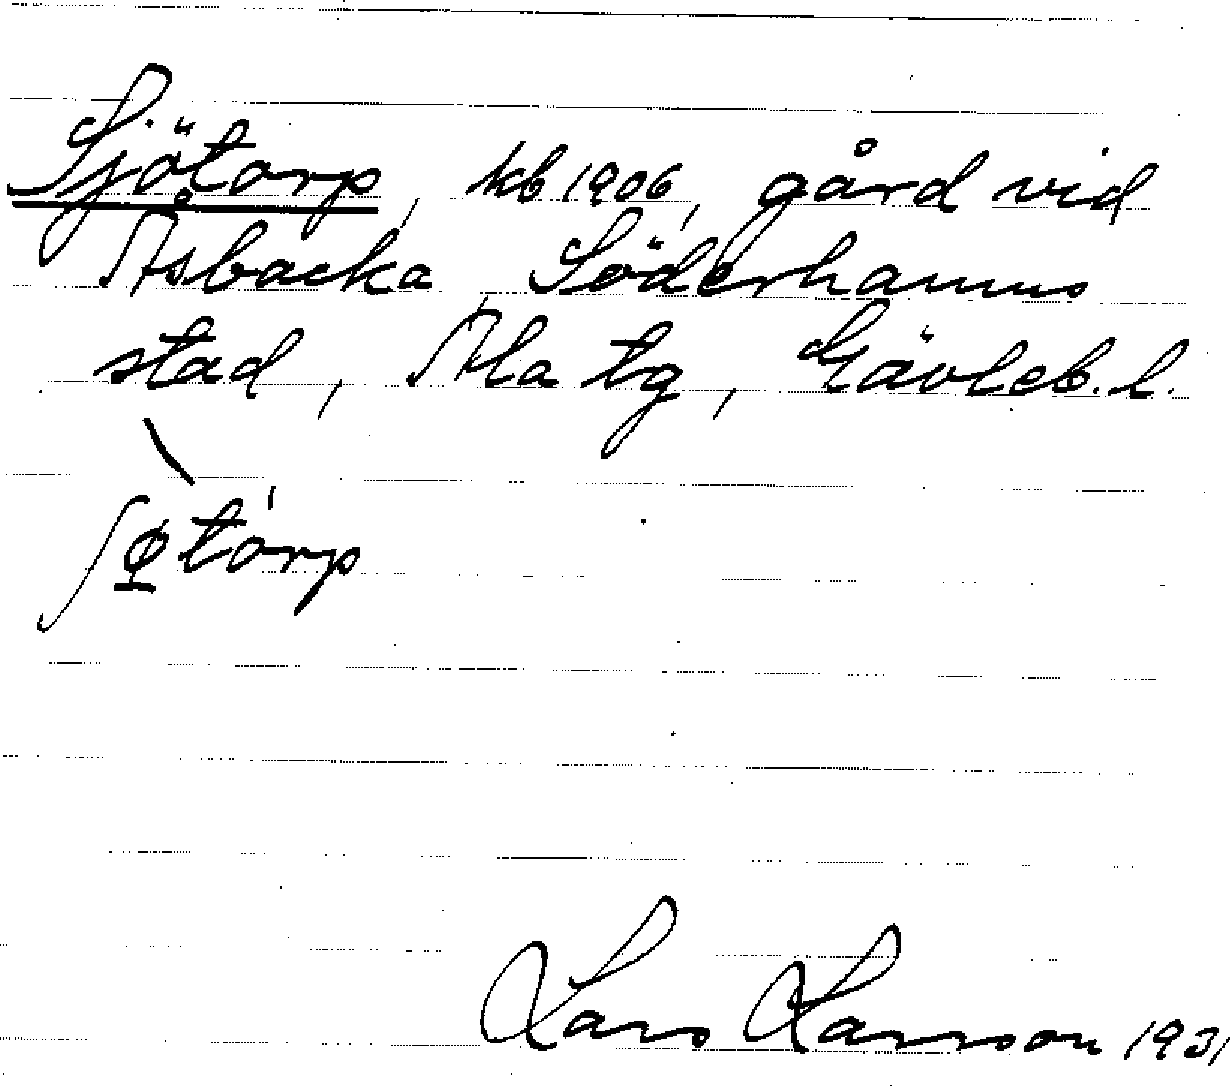 Sjötorp, kb 1906, gård vid
Åsbacka, Söderhamns
stad, Ala tg, Gävleb. l.
ʃφ̱tórp
Lars Larsson 1931